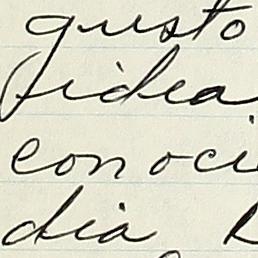 gusto
fidea
conoci
dia